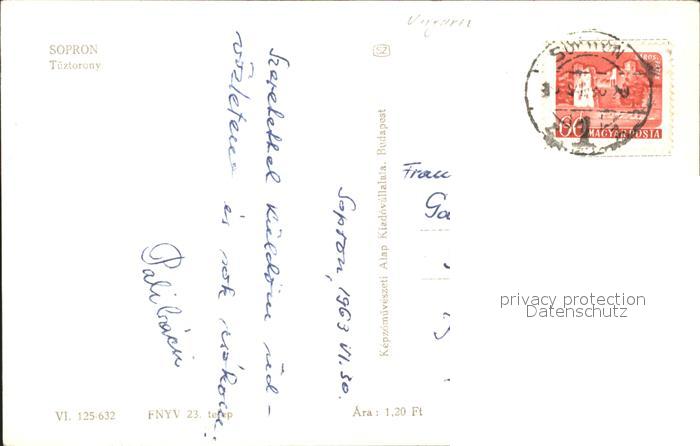 SOPRON
Tűztorony
Szeretettel küldöm üd-
vözletem és sok csókom:
Pali bácsi
Sopron, 1963 VI. 30.
Képzőművészeti Alap Kiadóvállalata, Budapest
SZ
SOPRON
60
MAGYAR POSTA
Frau
Ga
privacy protection
Datenschutz
VI. 125-632 FNYV 23. telep Ára: 1,20 Ft